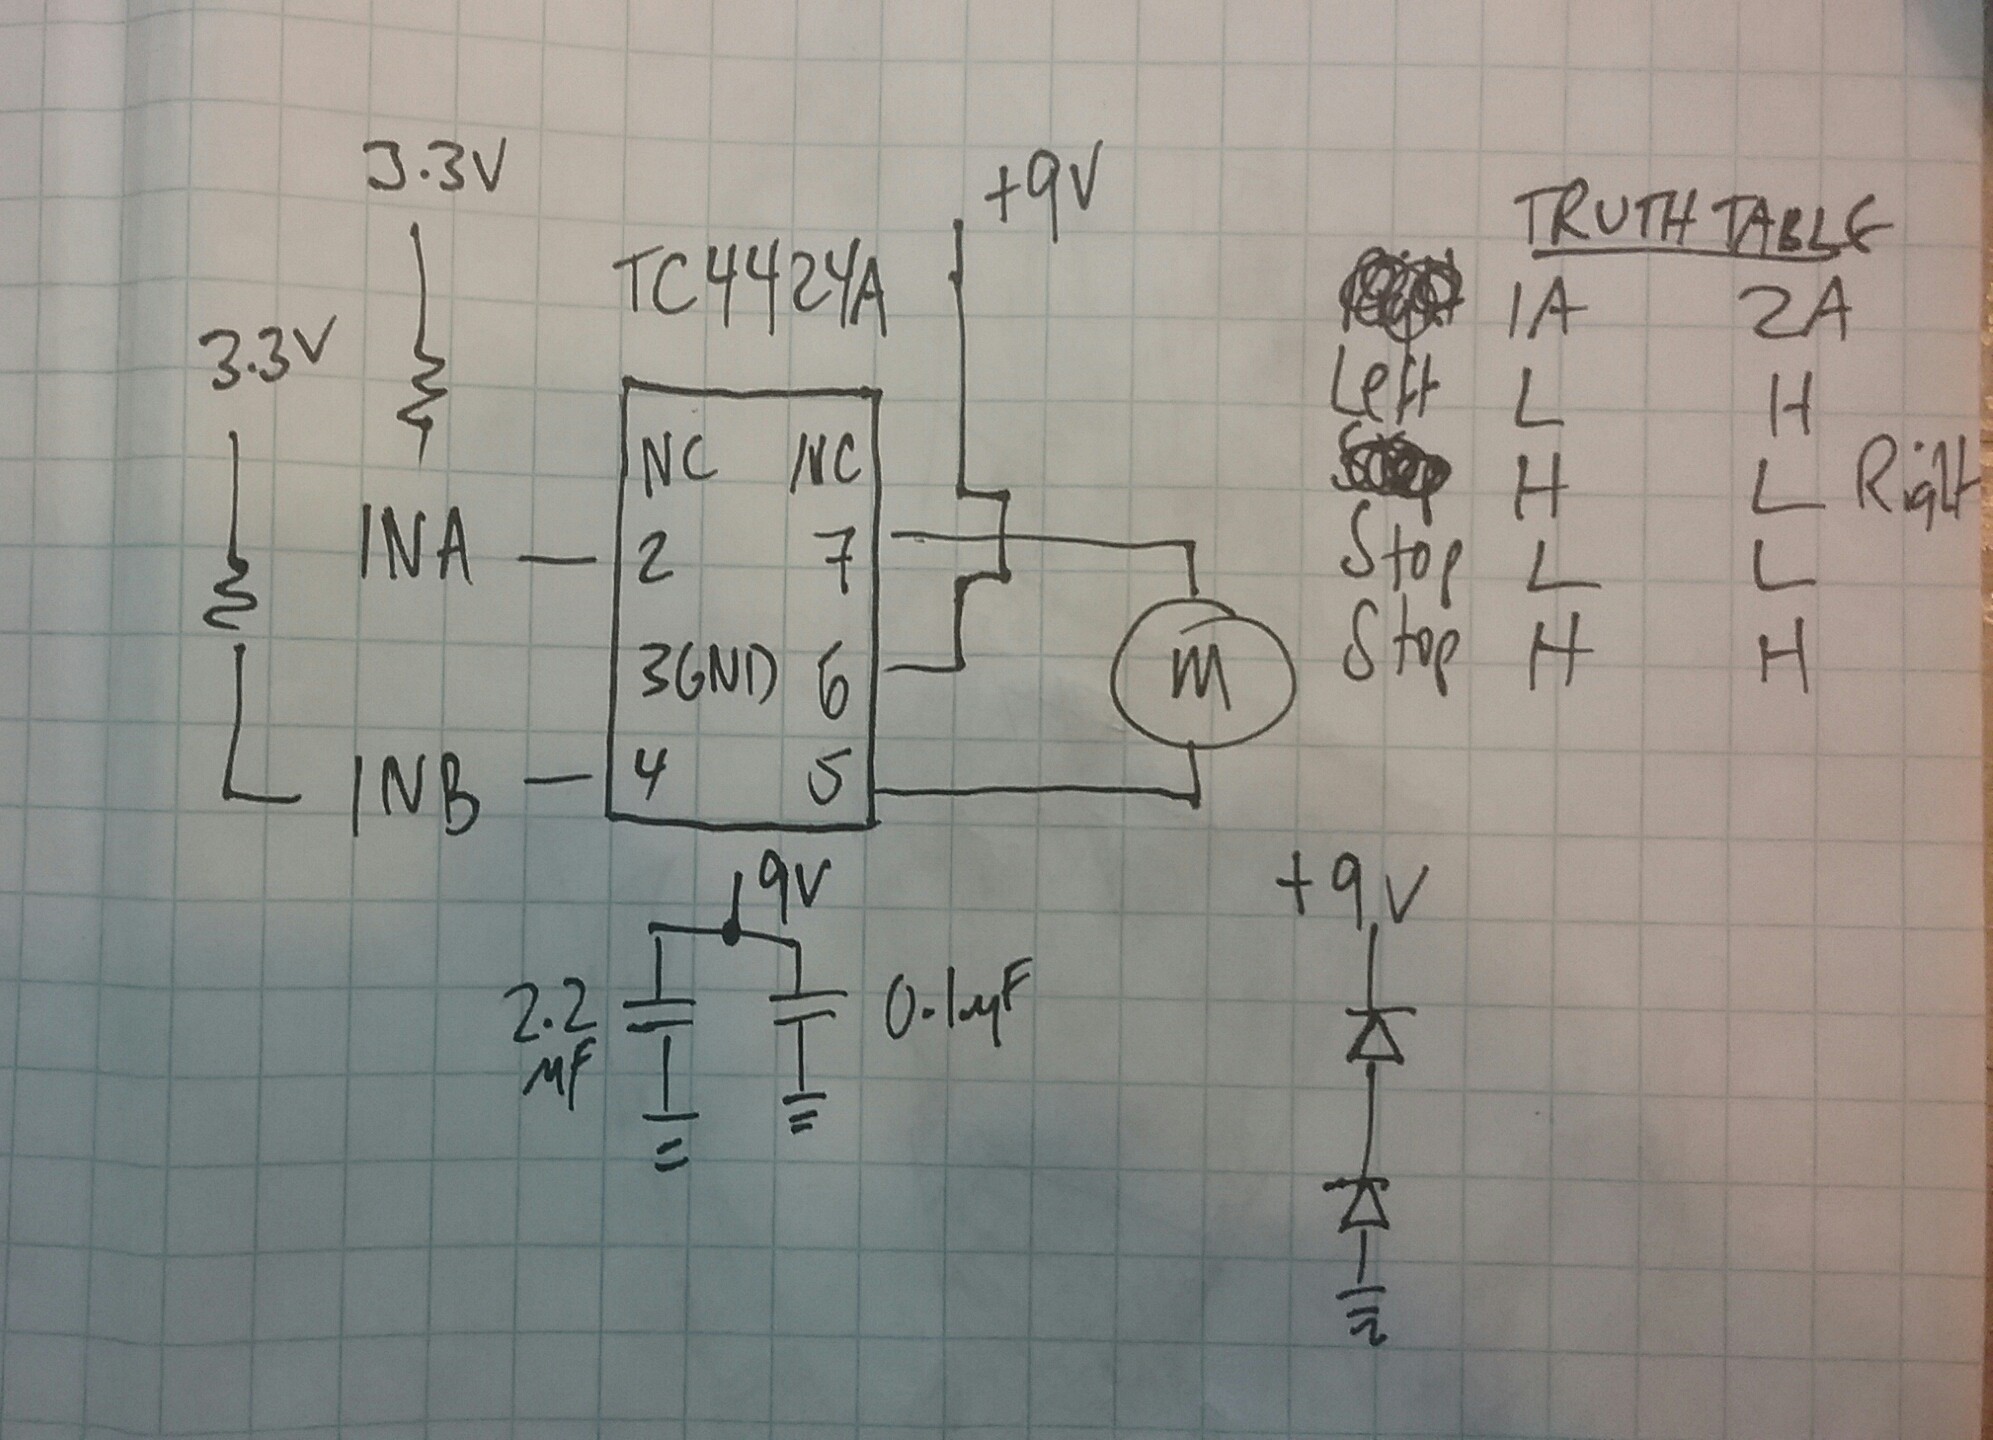 3.3V
+9V
TRUTH TABLE
TC4424A
1A 2A
3.3V
Left L H
NC NC
H L Right
INA 2 7
Stop L L
3GND 6
M
Stop H H
INB 4 5
9V
+9V
2.2 µF
0.1µF